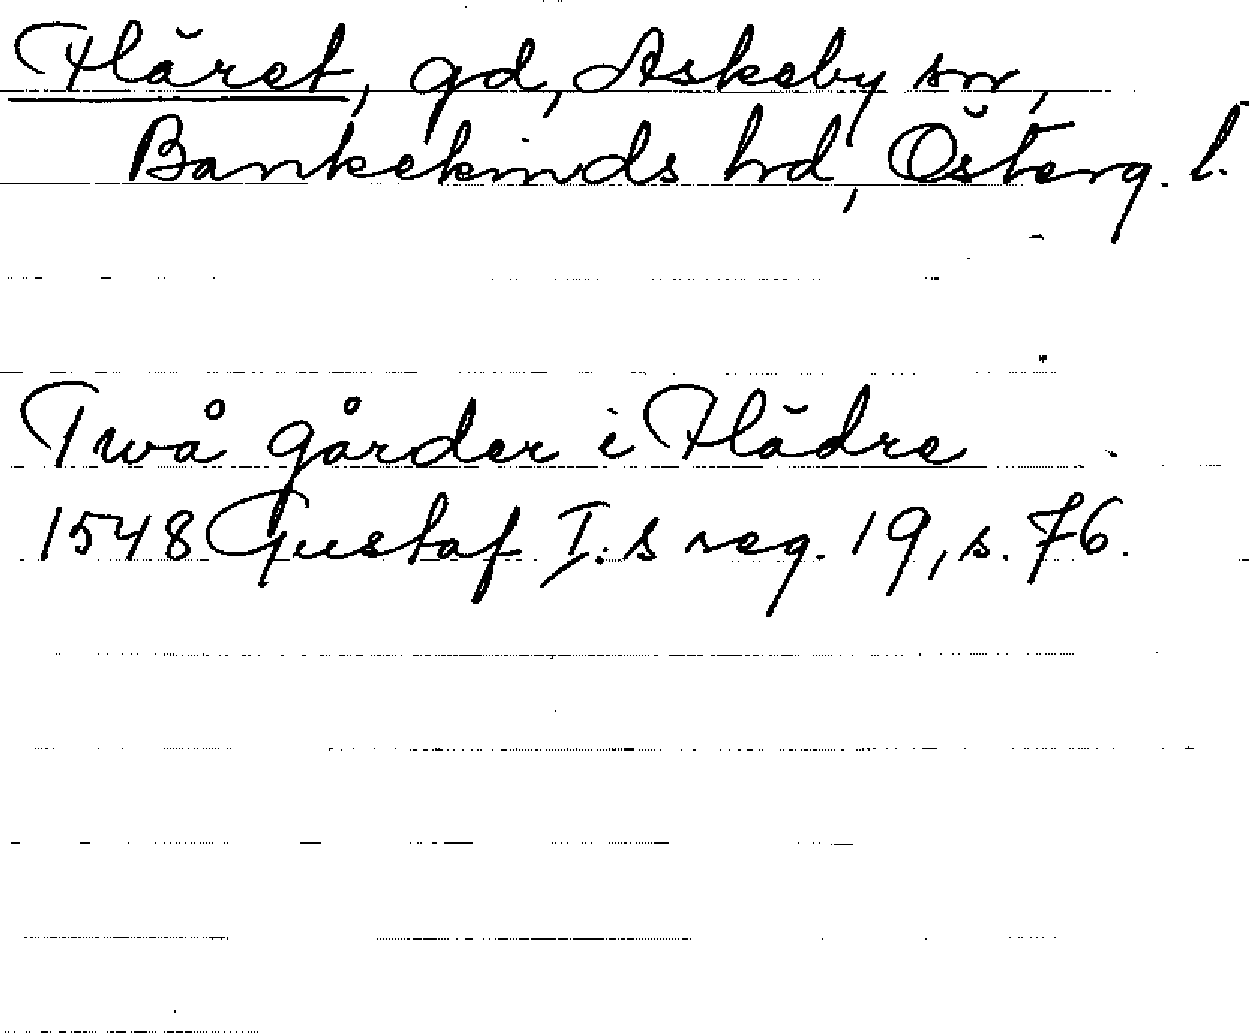 Fläret, gd, Askeby sn,
Bankekinds hd, Österg. l.
Twå gårder i Flädre
1548 Gustaf I:s reg. 19, s. 76.